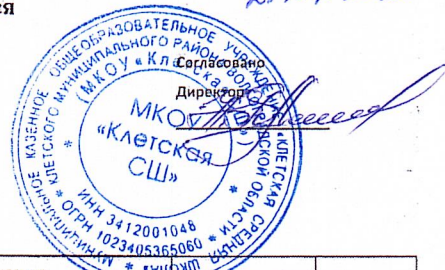 ся
Согласовано
Директор
МУНИЦИПАЛЬНОЕ КАЗЕННОЕ ОБЩЕОБРАЗОВАТЕЛЬНОЕ УЧРЕЖДЕНИЕ «КЛЕТСКАЯ СРЕДНЯЯ ШКОЛА»
КЛЕТСКОГО МУНИЦИПАЛЬНОГО РАЙОНА ВОЛГОГРАДСКОЙ ОБЛАСТИ
(МКОУ «Клетская СШ»)
МКОУ
«Клетская
СШ»
ИНН 3412001048
ОГРН 1023405365060